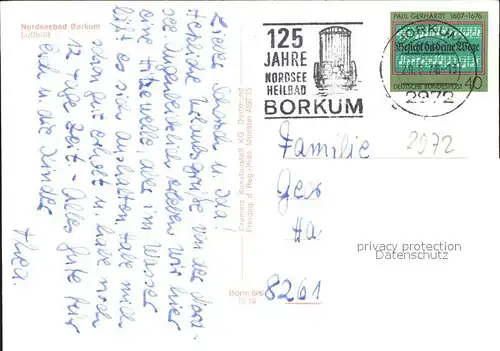 Nordseebad Borkum
Luftbild
Herzliche Urlaubsgrüße von der Nord-
erleben wir hier
eine Hitzewelle, aber im Wasser
läßt es sich aushalten. Habe mich
schon gut erholt u. habe noch
12 Tage Zeit. Alles Gute für
Euch u. die Kinder
Thea.
Cramers Kunstanstalt KG, Dortmund
Freigeg. d. Reg.-Präs. Münster
125
JAHRE
NORDSEE
HEILBAD
BORKUM
BORKUM 1
2972
PAUL GERHARDT 1607-1676
Befiehl du deine Wege
DEUTSCHE BUNDESPOST
40
2972
Familie
Ger
Ha.
8261
privacy protection
Datenschutz